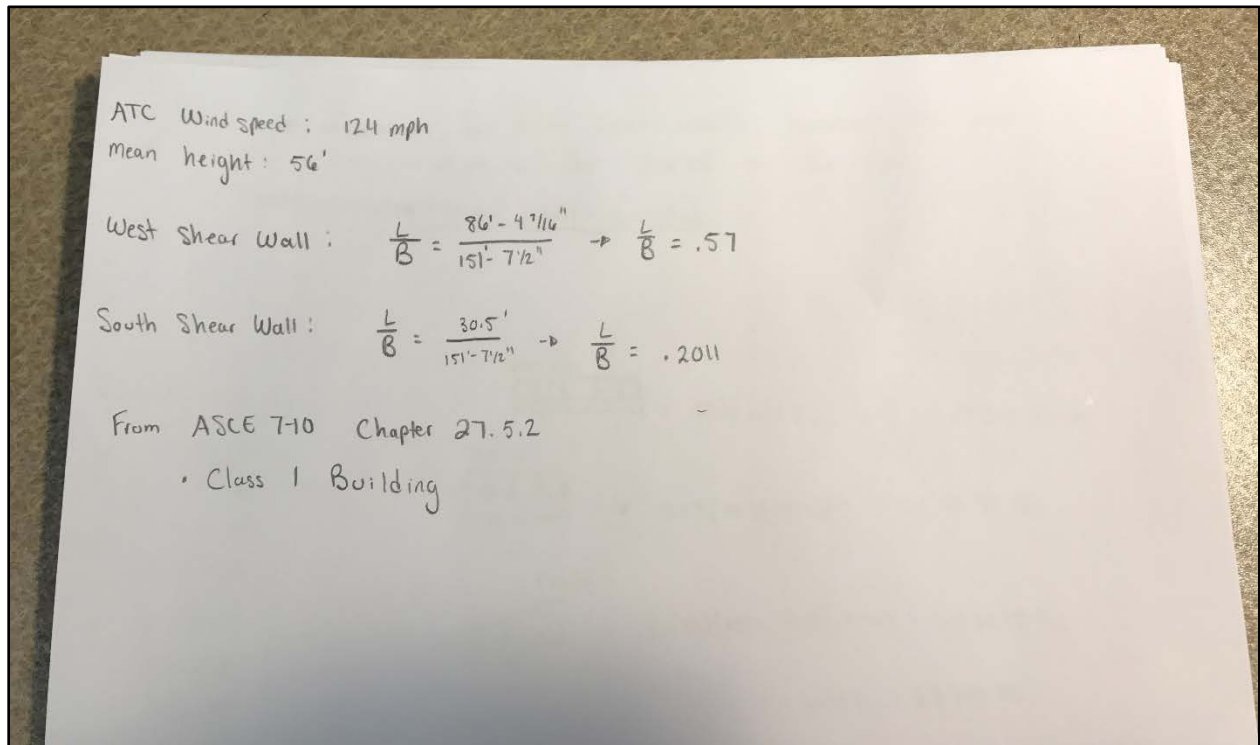 ATC Wind speed : 124 mph
Mean height : 56'
West Shear Wall : L/B = 86'- 4 7/16" / 151'- 7 1/2" → L/B = .57
South Shear Wall : L/B = 30.5' / 151'- 7 1/2" → L/B = .2011
From ASCE 7-10 Chapter 27.5.2
• Class 1 Building